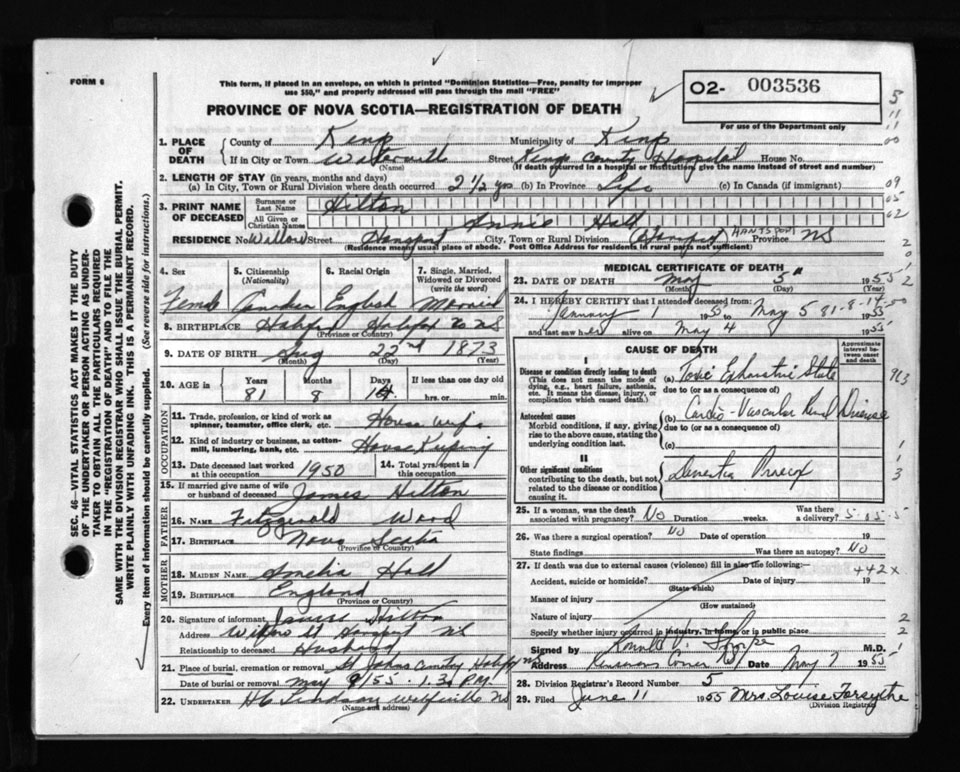 FORM 6
This form, if placed in an envelope, on which is printed "Dominion Statistics—Free, penalty for improper
use $50," and properly addressed will pass through the mail "FREE"
O2- 003536
For use of the Department only
PROVINCE OF NOVA SCOTIA—REGISTRATION OF DEATH
1. PLACE OF DEATH { County of Kings Municipality of Kings
If in City or Town Waterville Street Kings County Hospital House No.
(Name) (If death occurred in a hospital or institution, give the name instead of street and number)
2. LENGTH OF STAY (in years, months and days)
(a) In City, Town or Rural Division where death occurred 2 1/2 yrs (b) In Province Life (c) In Canada (if immigrant)
3. PRINT NAME OF DECEASED { Surname or Last Name Hilton
All Given or Christian Names Annie Hall
RESIDENCE No. Willow Street Hantsport City, Town or Rural Division HANTSPORT Province NS
(Residence means usual place of abode. Post Office Address for residents in rural parts not sufficient)
4. Sex
5. Citizenship (Nationality)
6. Racial Origin
7. Single, Married, Widowed or Divorced (write the word)
Female Canadian English Married
8. BIRTHPLACE Halifax Halifax Co NS
(Province or Country)
9. DATE OF BIRTH Aug 22nd 1873
(Month) (Day)
10. AGE in { Years Months Days If less than one day old
81 8 14 hrs. or min.
OCCUPATION
11. Trade, profession, or kind of work as spinner, teamster, office clerk, etc. Housewife
12. Kind of industry or business, as cotton-mill, lumbering, bank, etc. House Keeping
13. Date deceased last worked at this occupation 1950 14. Total yrs. spent in this occupation
15. If married give name of wife or husband of deceased James Hilton
FATHER
16. NAME Fitzgerald Wood
17. BIRTHPLACE Nova Scotia
(Province or Country)
MOTHER
18. MAIDEN NAME Amelia Hall
19. BIRTHPLACE England
(Province or Country)
20. Signature of informant James Hilton
Address Willow St Hantsport NS
Relationship to deceased Husband
21. Place of burial, cremation or removal St Johns Cemetery Halifax NS
Date of burial or removal May 9/55 · 1.30 P.M.
22. UNDERTAKER Lindsay Wolfville NS
(Name and address)
MEDICAL CERTIFICATE OF DEATH
23. DATE OF DEATH May 5" 1955
(Month) (Day)
24. I HEREBY CERTIFY that I attended deceased from:
January 1 1955 to May 5 1955
81-8-14
and last saw her alive on May 4 1955
CAUSE OF DEATH
Approximate interval between onset and death
I
Disease or condition directly leading to death
(This does not mean the mode of dying, e.g., heart failure, asthenia, etc. It means the disease, injury, or complication which caused death.)
(a) Toxic Exhaustive State
due to (or as a consequence of)
Antecedent causes
Morbid conditions, if any, giving rise to the above cause, stating the underlying condition last.
(b) Cardio-Vascular Renal Disease
due to (or as a consequence of)
(c)
II
Other significant conditions contributing to the death, but not related to the disease or condition causing it.
Dementia Praecox
25. If a woman, was the death associated with pregnancy? No Duration weeks. Was there a delivery?
26. Was there a surgical operation? No Date of operation 19
State findings Was there an autopsy? No
27. If death was due to external causes (violence) fill in also the following:—
442X
Accident, suicide or homicide? Date of injury 19
(State which)
Manner of injury
(How sustained)
Nature of injury
Specify whether injury occurred in industry, in home, or in public place
Signed by M.D.
Address Date May 7 1955
28. Division Registrar's Record Number 5
29. Filed June 11 1955 Mrs. Louise Forsythe
(Division Registrar)
SEC. 46—VITAL STATISTICS ACT MAKES IT THE DUTY
OF THE UNDERTAKER OR PERSON ACTING AS UNDERTAKER TO OBTAIN ALL THE PARTICULARS REQUIRED
IN THE "REGISTRATION OF DEATH" AND TO FILE THE
SAME WITH THE DIVISION REGISTRAR WHO SHALL ISSUE THE BURIAL PERMIT.
WRITE PLAINLY WITH UNFADING INK. THIS IS A PERMANENT RECORD.
Every item of information should be carefully supplied. (See reverse side for instructions.)